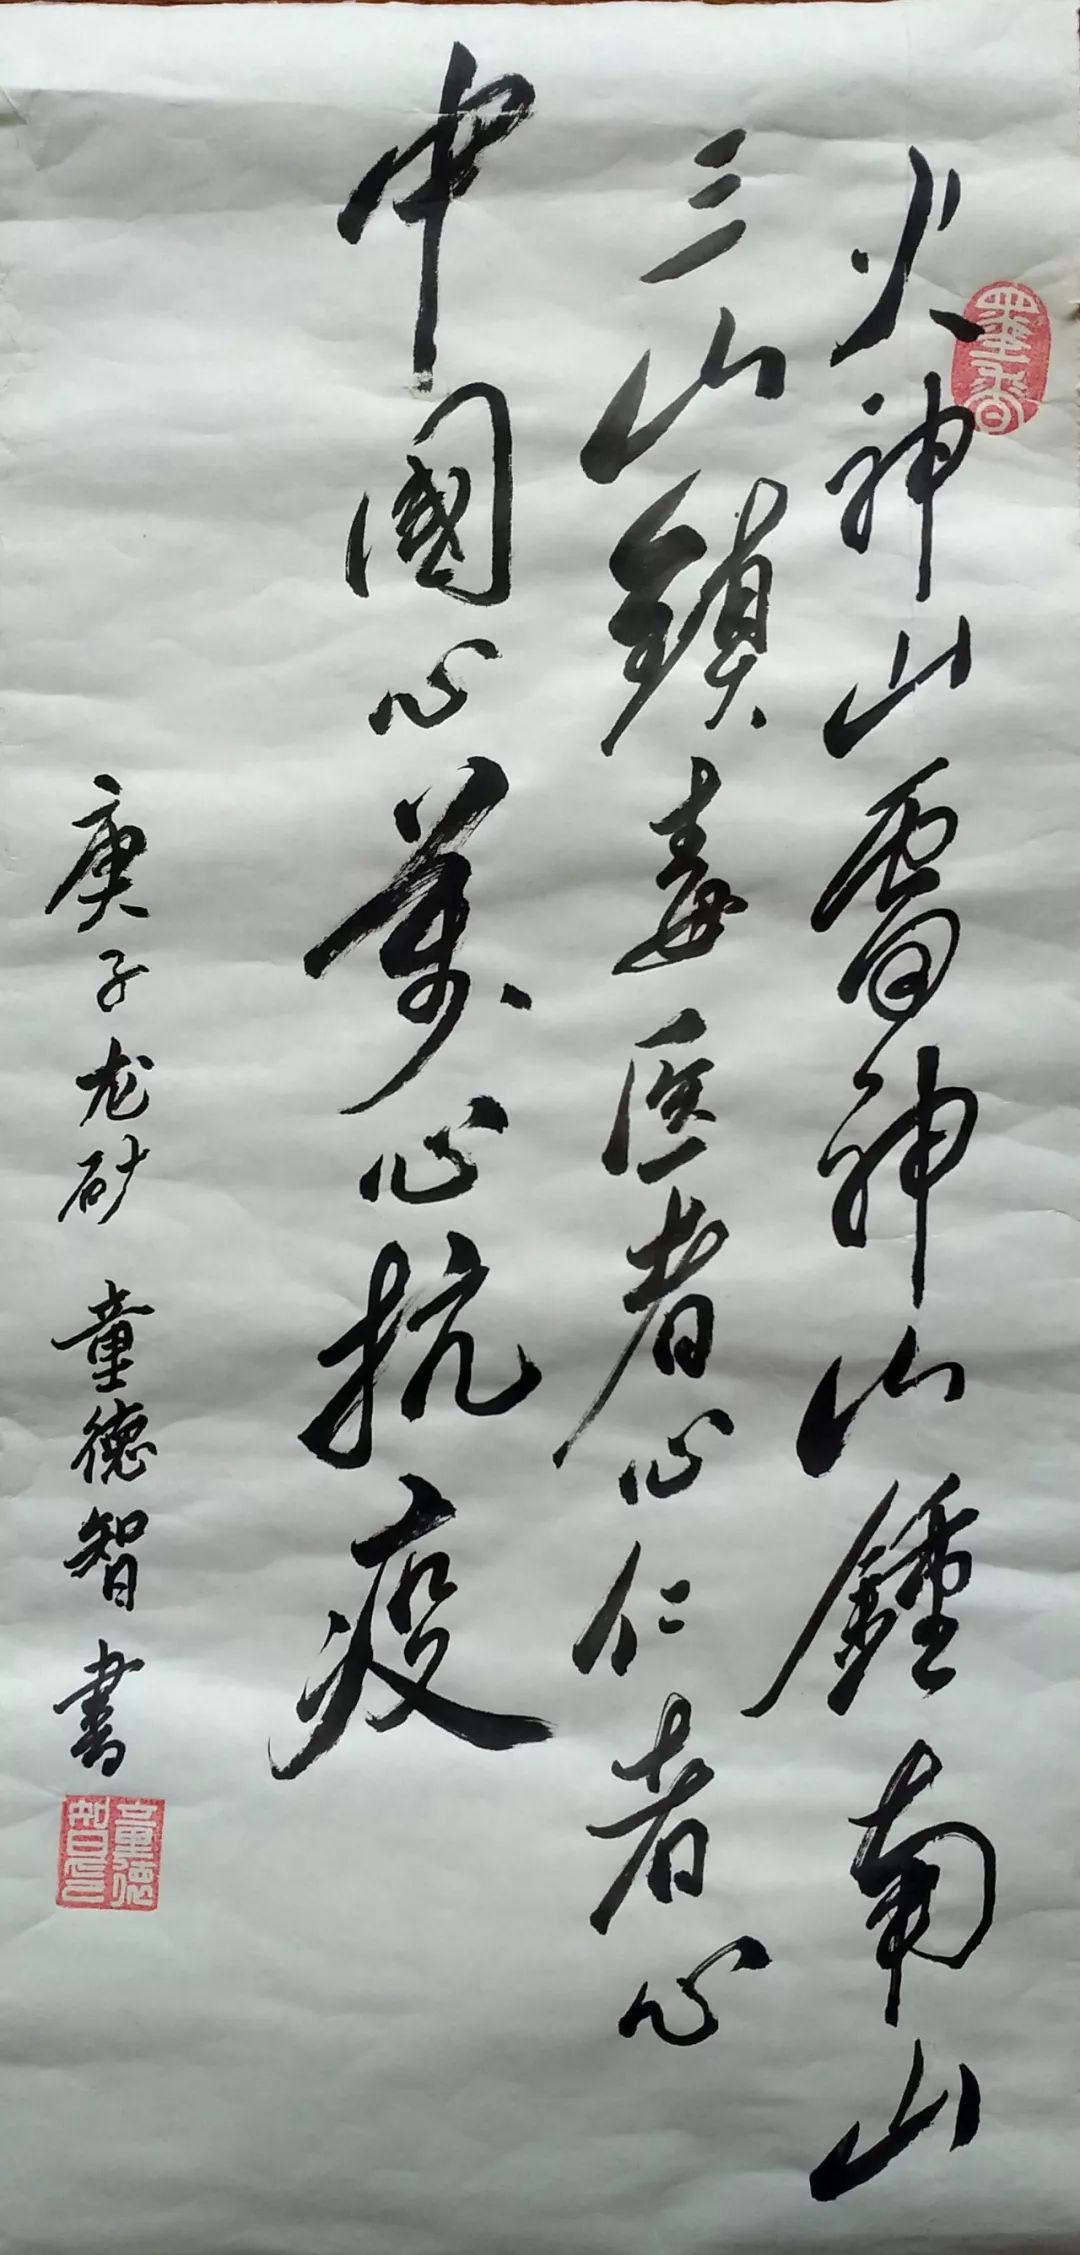 火神山雷神山鍾南山
三山鎮毒医者心仁者心
中國心萬心抗疫
庚子龙砂 童德智書
墨香
童德智印